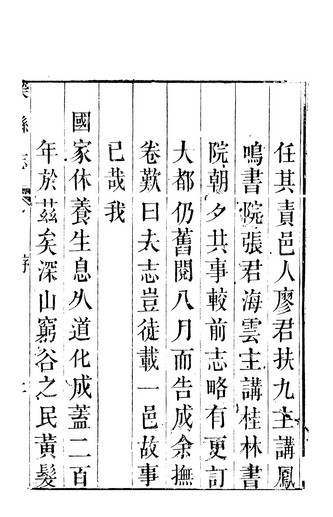 任其責邑人廖君扶九主講鳳
鳴書院張君海雲主講桂林書
院朝夕其事較前志略有更訂
大都仍舊閱八月而告成余撫
卷歎曰夫志豈徒載一邑故事
已哉我
國家休養生息久道化成蓋二百
年於茲矣深山窮谷之民黃髮
縣志
序